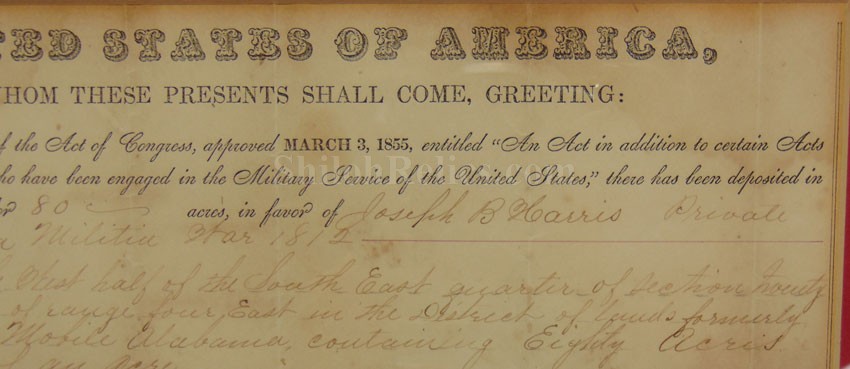 TED STATES OF AMERICA,
WHOM THESE PRESENTS SHALL COME, GREETING:
of the Act of Congress, approved MARCH 3, 1855, entitled "An Act in addition to certain Acts
ho have been engaged in the Military Service of the United States," there has been deposited in
80 acres, in favor of Joseph B Harris Private
Militia War 1812
West half of the South East quarter of section twenty
of range four East in the District of lands formerly
Mobile Alabama, containing Eighty Acris
an acre